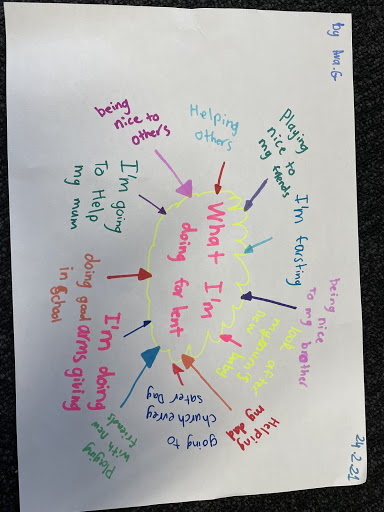 by Ava.G
24.2.21
What I'm
doing for lent
Helping
others
Playing
nice to
my friends
I'm farsting
being nice
to my brother
look after
my mum's new
baby
Helping
my dad
going to
church evrey
sater Day
Playing
with new
friends
I'm doing
arms giving
doing good
in school
I'm going
To Help
my mum
being
nice to
others